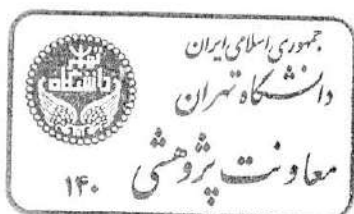 جمهوری اسلامی ایران
دانشگاه تهران
معاونت پژوهشی
۱۴۰